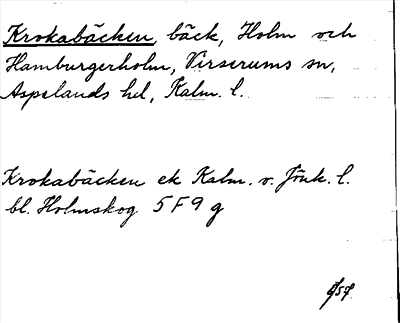 Krokabäcken, bäck, Holm och
Hamburgerholm, Virserums sn,
Aspelands hd, Kalm. l.
Krokabäcken ek Kalm. v. Jönk. l.
bl. Holmskog 5 F 9 g